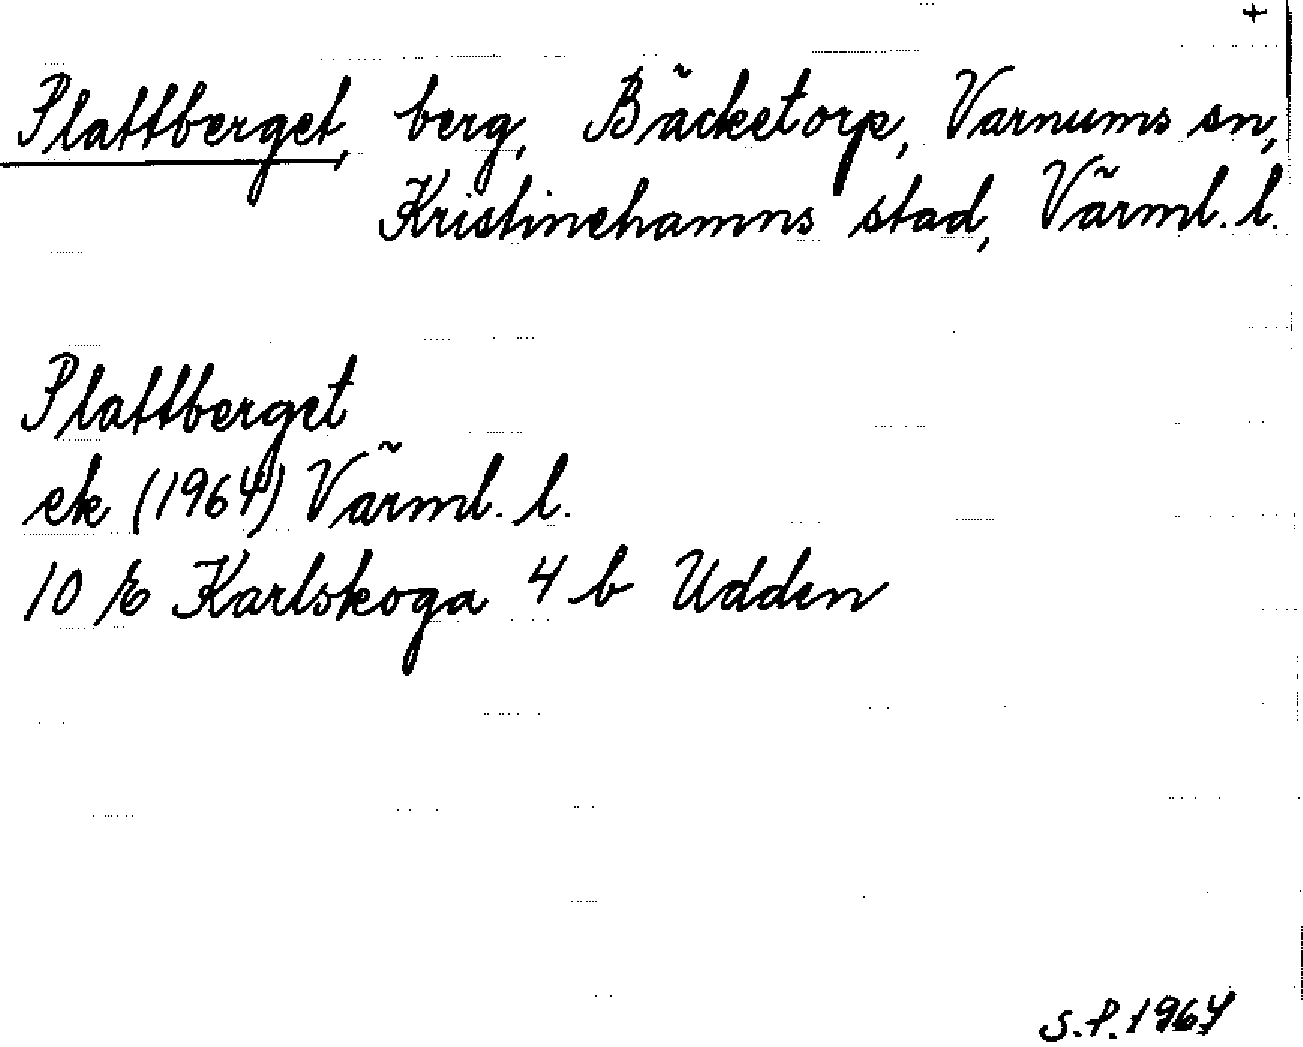 +
Plattberget, berg, Bäcketorp, Varnums sn,
Kristinehamns stad, Värml. l.
Plattberget
ek (1964) Värml. l.
10 E Karlskoga 4 b Udden
S.P. 1964